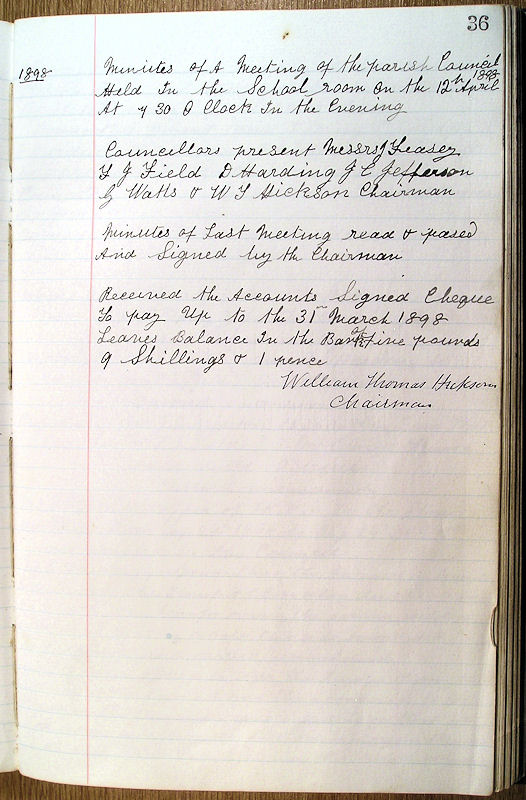 36
1898
Minutes of A Meeting of the parish Council
Held In the School room on the 12th April 1898
At 7 30 O Clock In the Evening
Councillors present Messrs J Feasey
T J Field D Harding J C Jefferson
G Watts & W T Hickson Chairman
Minutes of Last Meeting read & pased
And Signed by the Chairman
Received the Accounts Signed Cheque
To pay Up to the 31st March 1898
Leaves Balance In the Bank of Five pounds
9 Shillings & 1 pence
William Thomas Hickson
Chairman